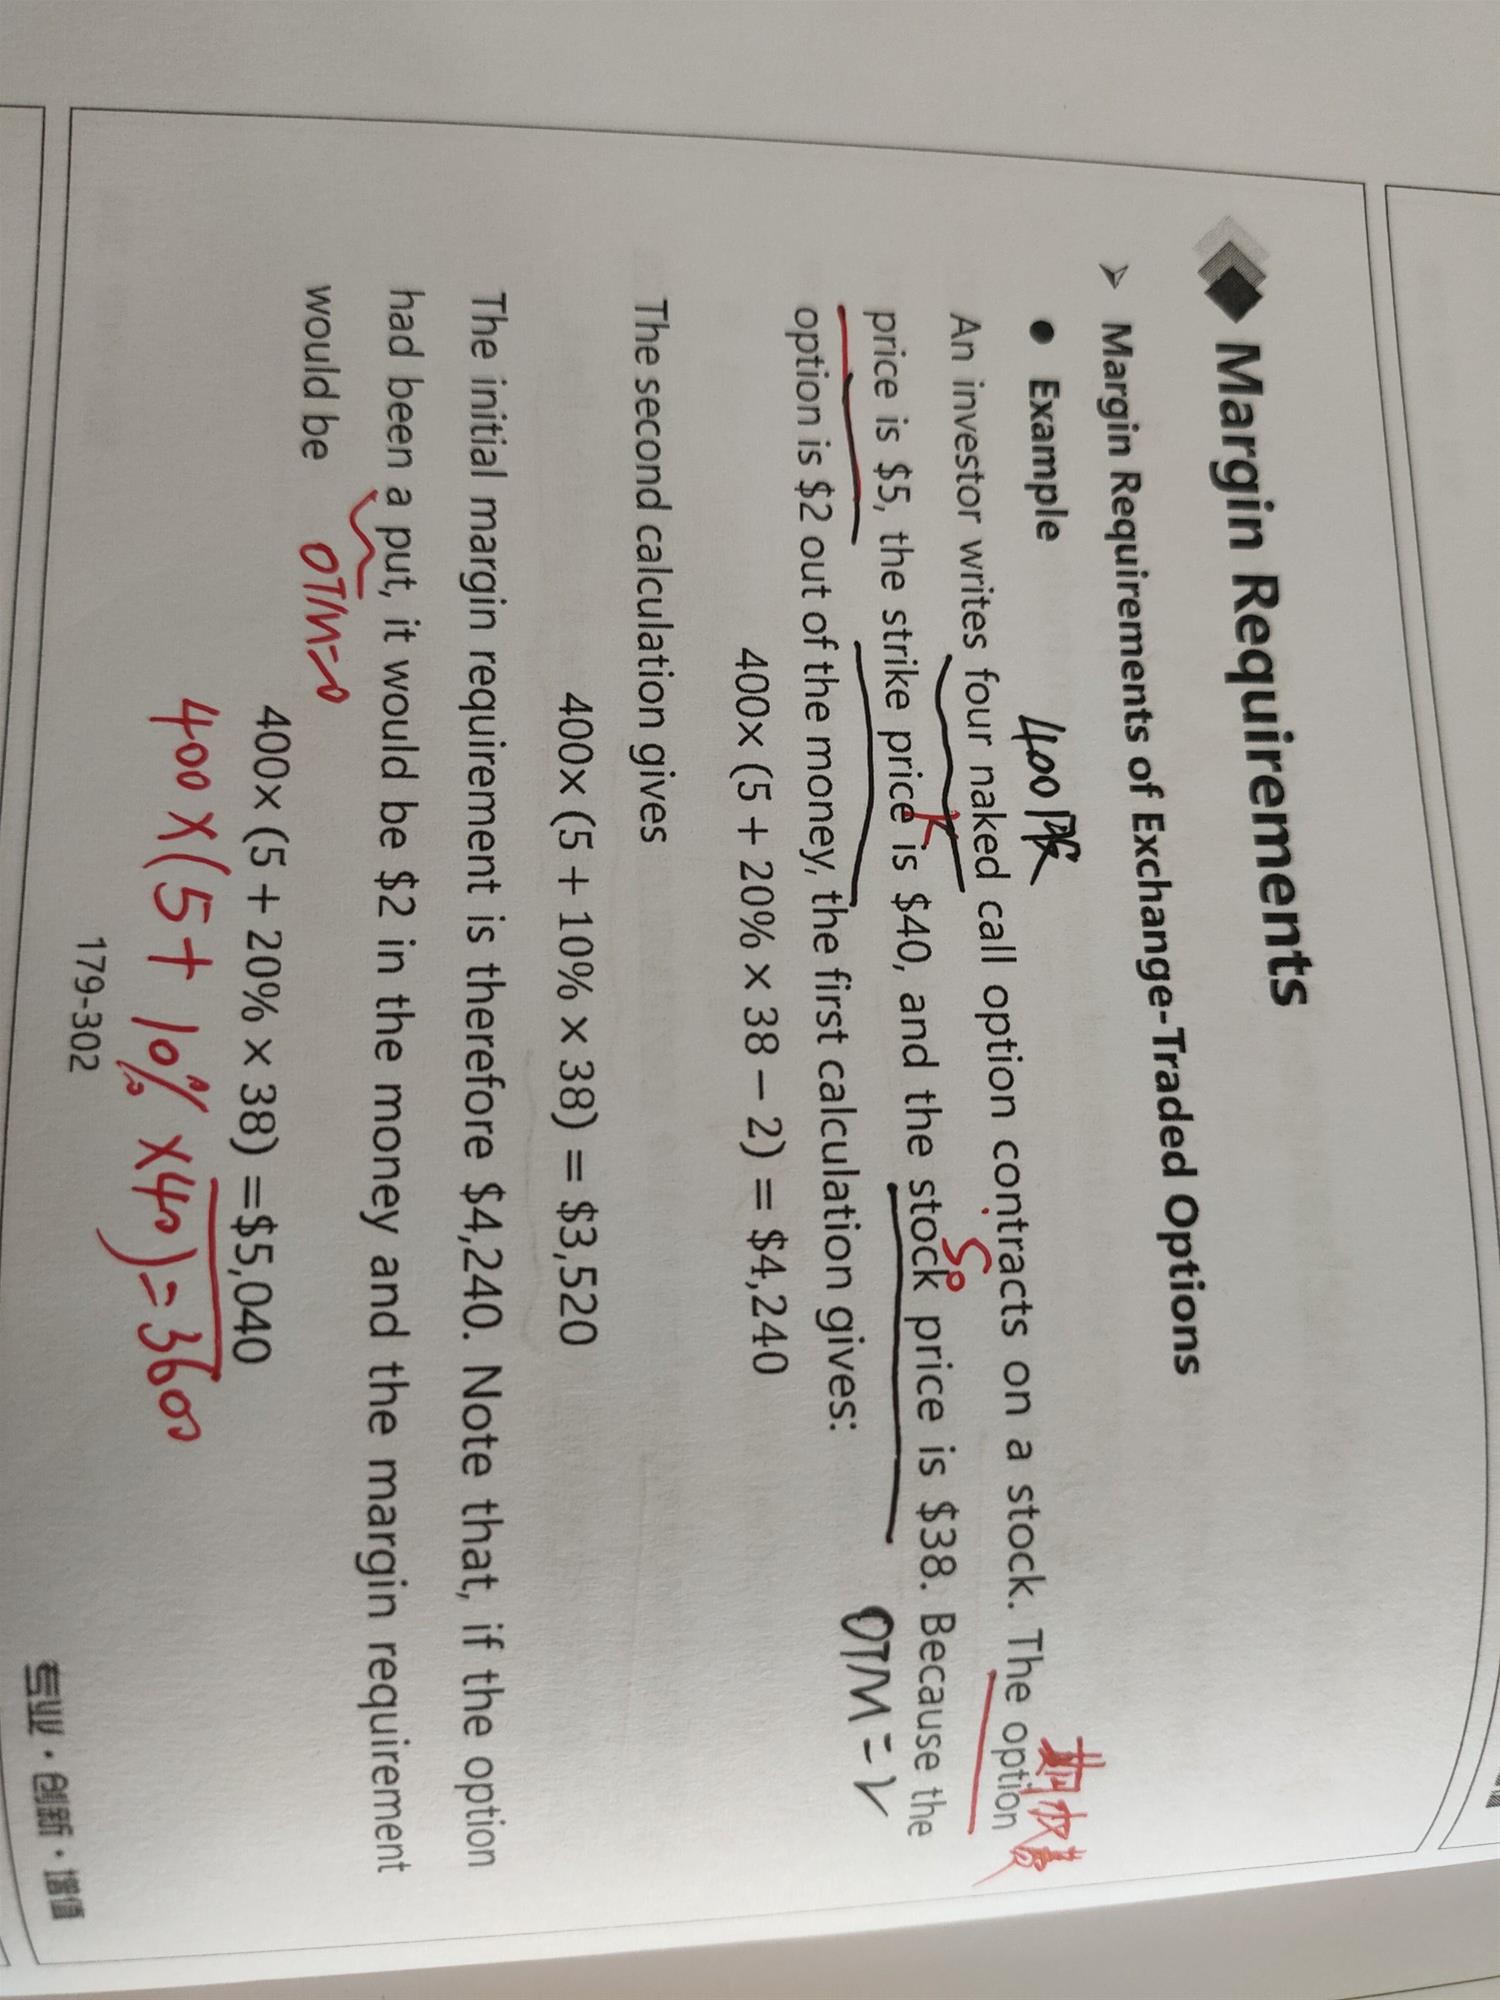 Margin Requirements
➢ Margin Requirements of Exchange-Traded Options
● Example
400股
期权费
An investor writes four naked call option contracts on a stock. The option
K
S0
price is $5, the strike price is $40, and the stock price is $38. Because the
OTM=2
option is $2 out of the money, the first calculation gives:
400× (5 + 20% × 38 – 2) = $4,240
The second calculation gives
400× (5 + 10% × 38) = $3,520
The initial margin requirement is therefore $4,240. Note that, if the option
had been a put, it would be $2 in the money and the margin requirement
would be
OTM=0
400× (5 + 20% × 38) =$5,040
400 × (5 + 10% ×40) = 3600
179-302
专业·创新·增值